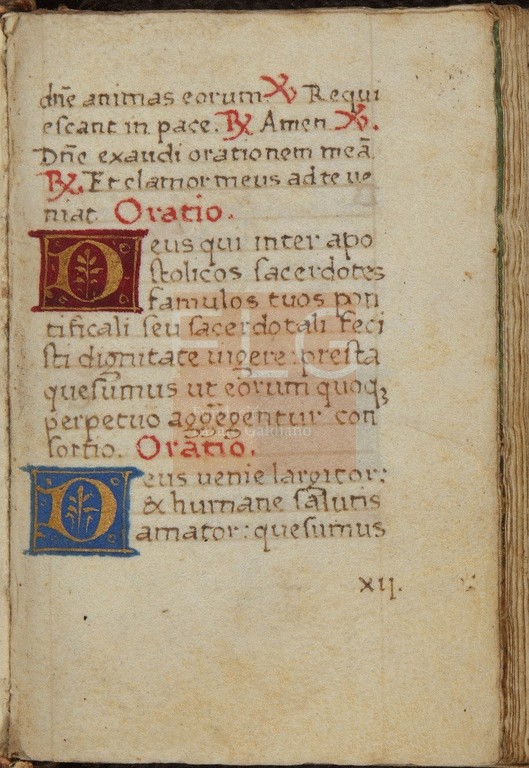 dn̄e animas eorum. ℣ Requi
escant in pace. ℟ Amen ℣.
Dn̄e exaudi orationem meā
℟. Et clamor meus ad te ue
niat. Oratio.
Deus qui inter apo
stolicos sacerdotes
famulos tuos pon
tificali seu sacerdotali feci
sti dignitate uigere: presta
quesumus ut eorum quoqꝫ
perpetuo aggregentur con
sortio. Oratio.
Deus uenie largitor:
& humane salutis
amator: quesumus
xij.
FLG
Galdiano